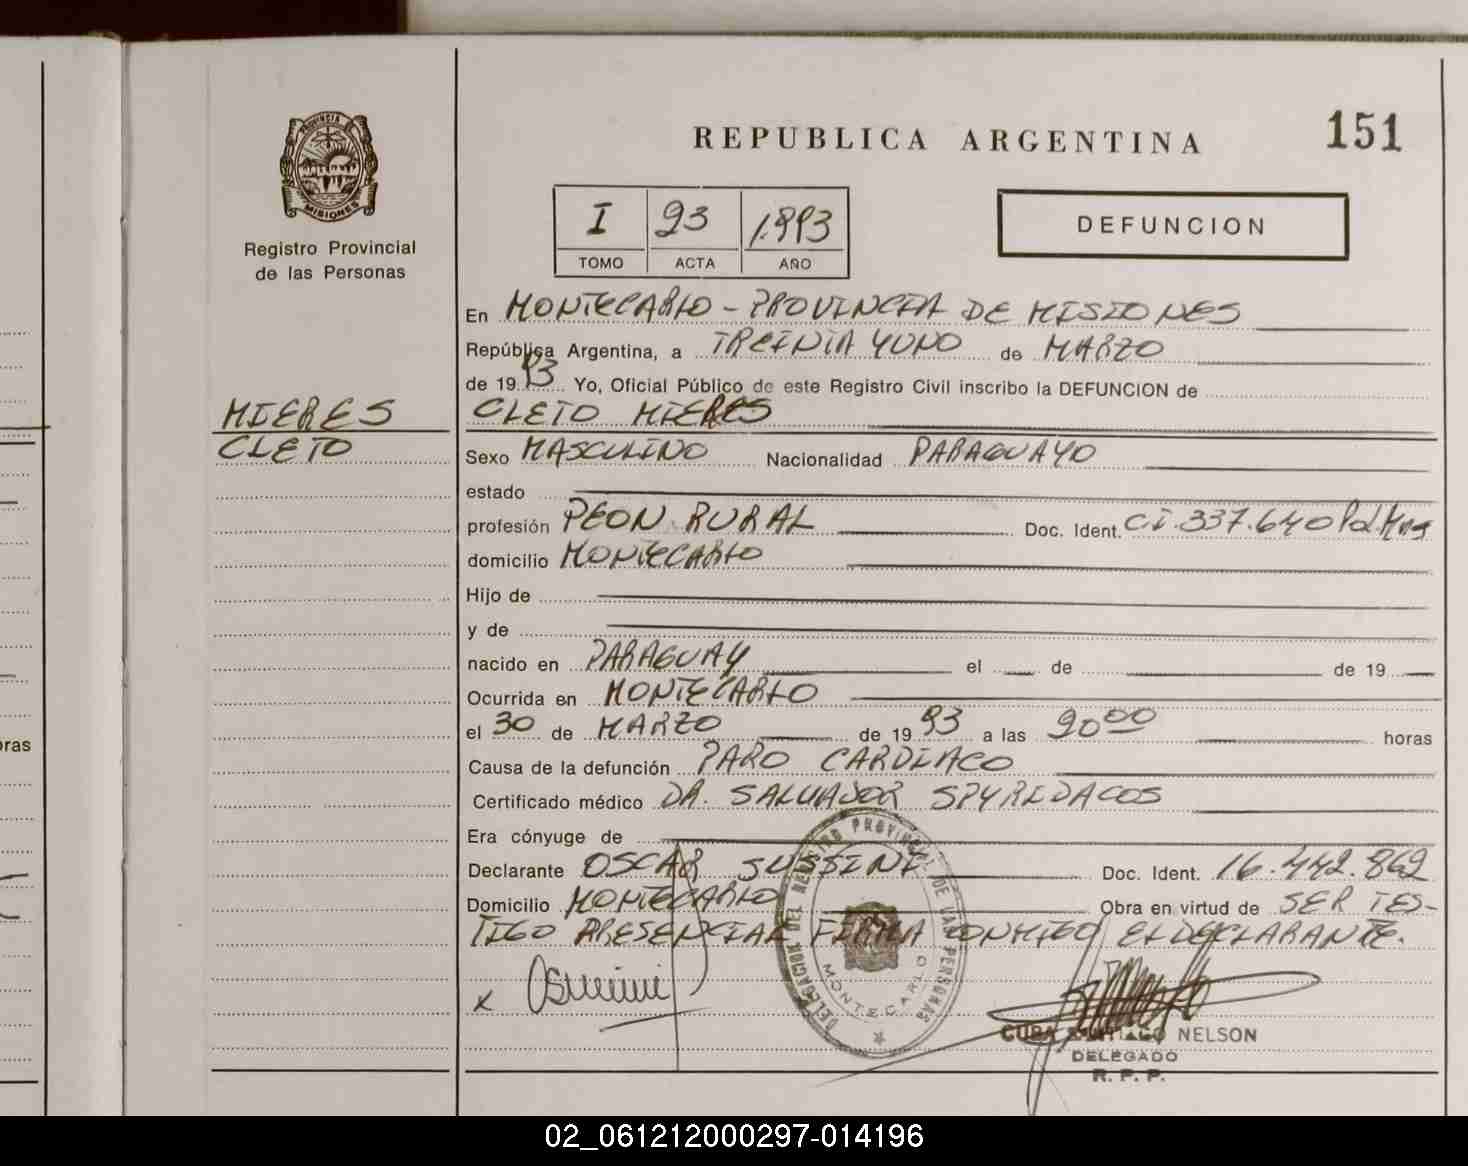 REPUBLICA ARGENTINA
151
PROVINCIA DE
MISIONES
Registro Provincial
de las Personas
I 23 1.993
TOMO ACTA AÑO
DEFUNCION
En MONTECARLO - PROVINCIA DE MISIONES
República Argentina, a TREINTA YUNO de MARZO
de 19 93 Yo, Oficial Público de este Registro Civil inscribo la DEFUNCION de
MIERES
CLETO MIERES
CLETO
Sexo MASCULINO Nacionalidad PARAGUAYO
estado
profesión PEON RURAL Doc. Ident. C.I. 337.640 Pol. Mns
domicilio MONTECARLO
Hijo de
y de
nacido en PARAGUAY el de de 19
Ocurrida en MONTECARLO
el 30 de MARZO de 19 93 a las 20 00 horas
Causa de la defunción PARO CARDIACO
Certificado médico DR. SALVADOR SPYRIDACOS
Era cónyuge de
Declarante OSCAR SUSSINI Doc. Ident. 16.442.862
Domicilio MONTECARLO Obra en virtud de SER TES-
TIGO PRESENCIAL FIRMA CONMIGO EL DECLARANTE.
x
DELEGACION DEL REGISTRO PROVINCIAL DE LAS PERSONAS
MONTECARLO
CUBA SANTIAGO NELSON
DELEGADO
R. P. P.
oras
02_061212000297-014196